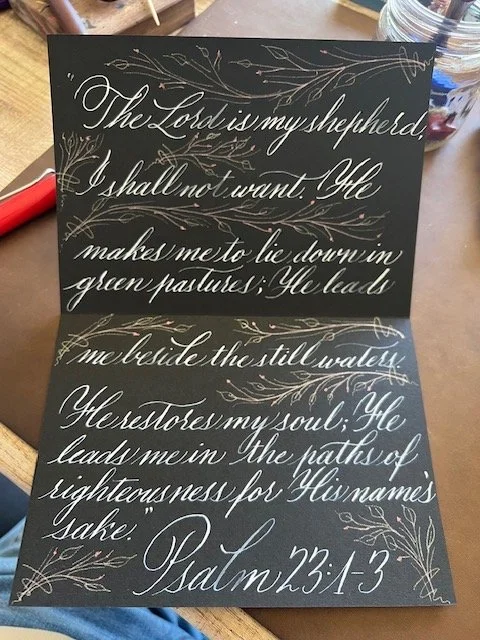 "The Lord is my shepherd,
I shall not want. He
makes me to lie down in
green pastures; He leads
me beside the still waters.
He restores my soul; He
leads me in the paths of
righteousness for His name's
sake."
Psalm 23:1-3